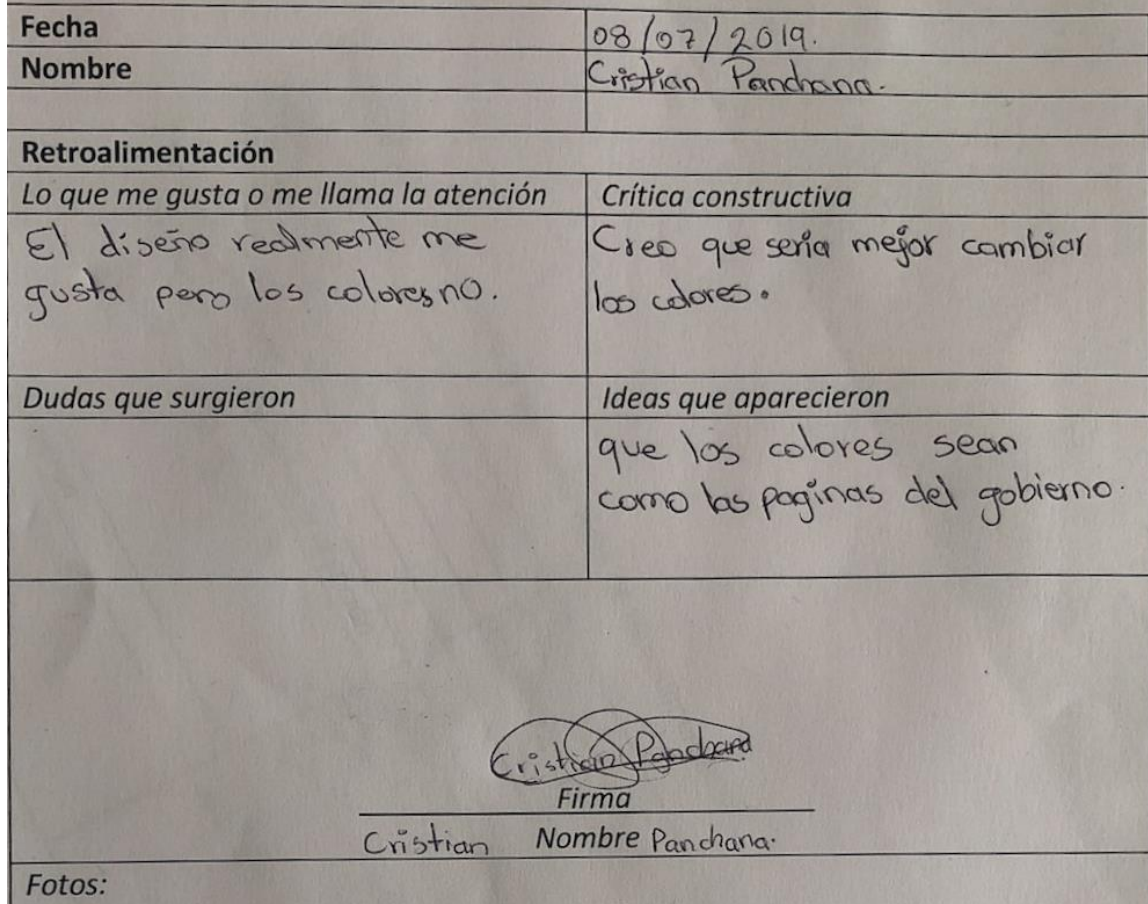 Fecha 08/07/2019.
Nombre Cristian Panchana.
Retroalimentación
Lo que me gusta o me llama la atención
Crítica constructiva
El diseño realmente me
gusta pero los colores no.
Creo que sería mejor cambiar
los colores.
Dudas que surgieron
Ideas que aparecieron
que los colores sean
como las paginas del gobierno.
Cristian Panchana
Firma
Cristian Nombre Panchana.
Fotos: